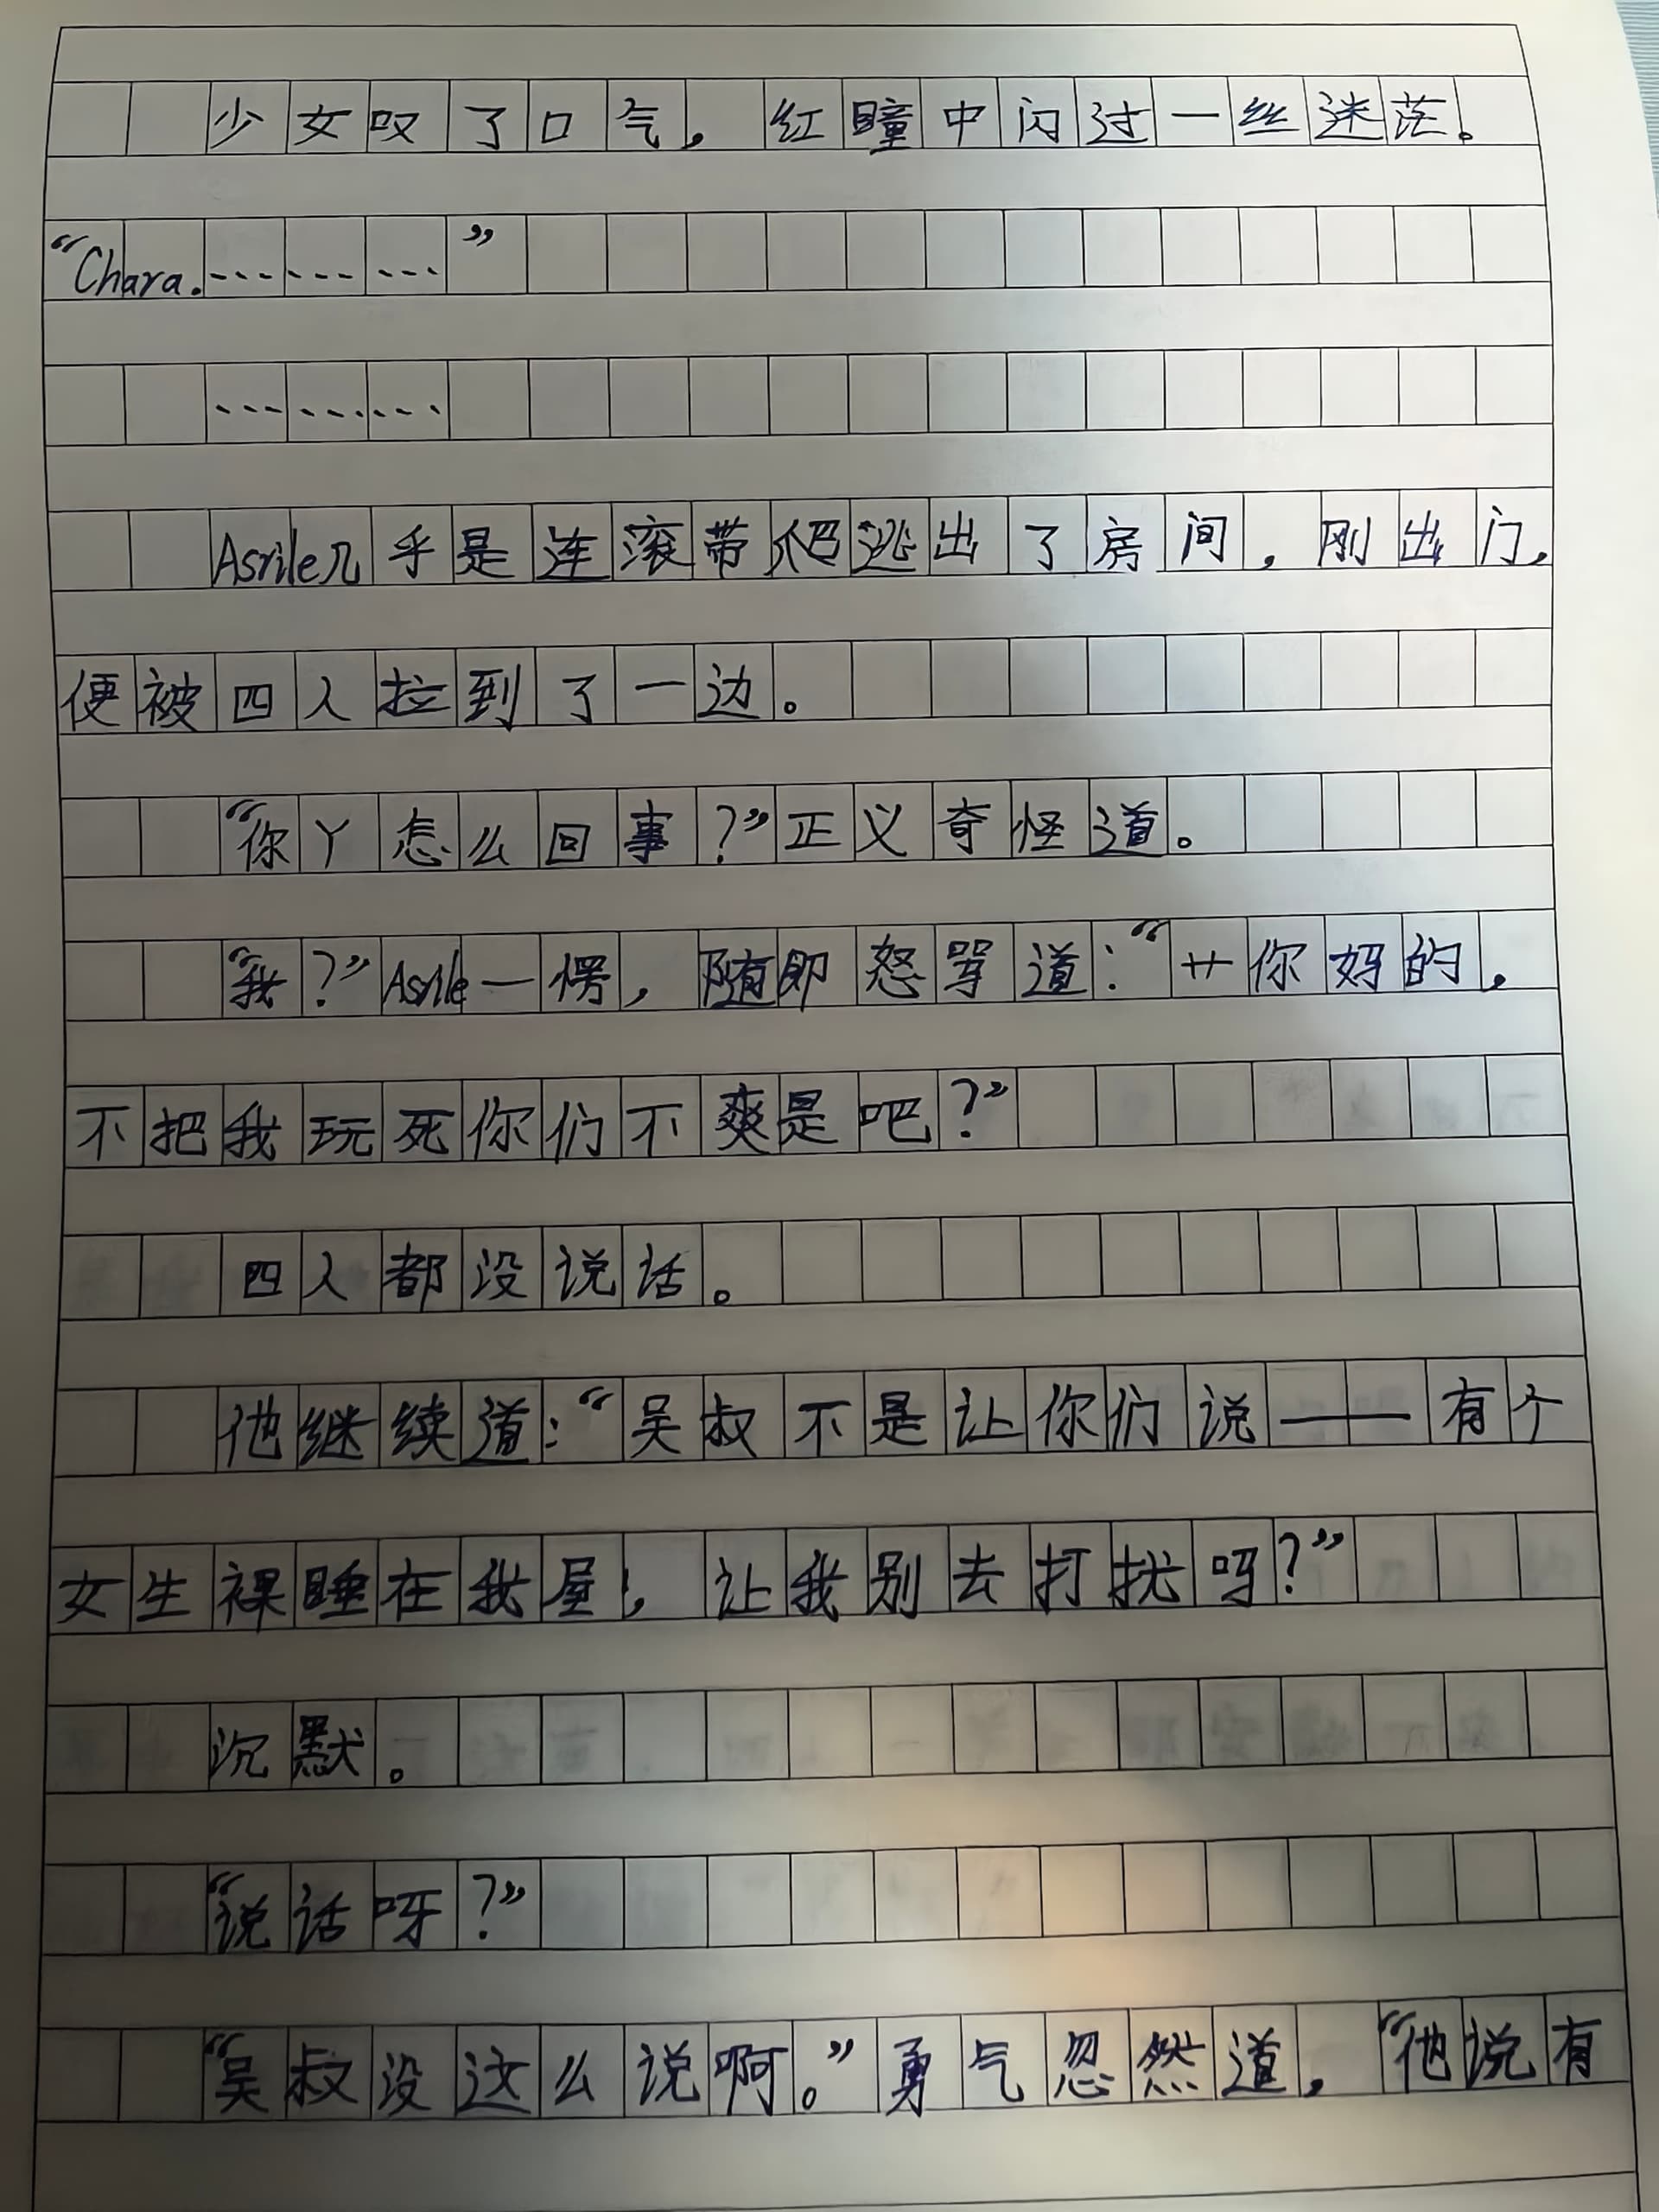 少女叹了口气，红瞳中闪过一丝迷茫。
“Chara.………”
………
Asrile几乎是连滚带爬逃出了房间，刚出门，
便被四人拉到了一边。
“你丫怎么回事？”正义奇怪道。
“我？”Asrile一愣，随即怒骂道：“艹你妈的，
不把我玩死你们不爽是吧？”
四人都没说话。
他继续道：“吴叔不是让你们说——有个
女生裸睡在我屋，让我别去打扰吗？”
沉默。
“说话呀？”
“吴叔没这么说啊。”勇气忽然道，“他说有